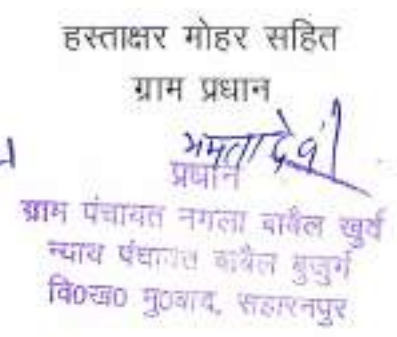 हस्ताक्षर मोहर सहित
ग्राम प्रधान
ममता देवी
प्रधान
ग्राम पंचायत नगला बाबैल खुर्द
न्याय पंचायत बाबैल बुजुर्ग
वि०ख० मु०बाद, सहारनपुर